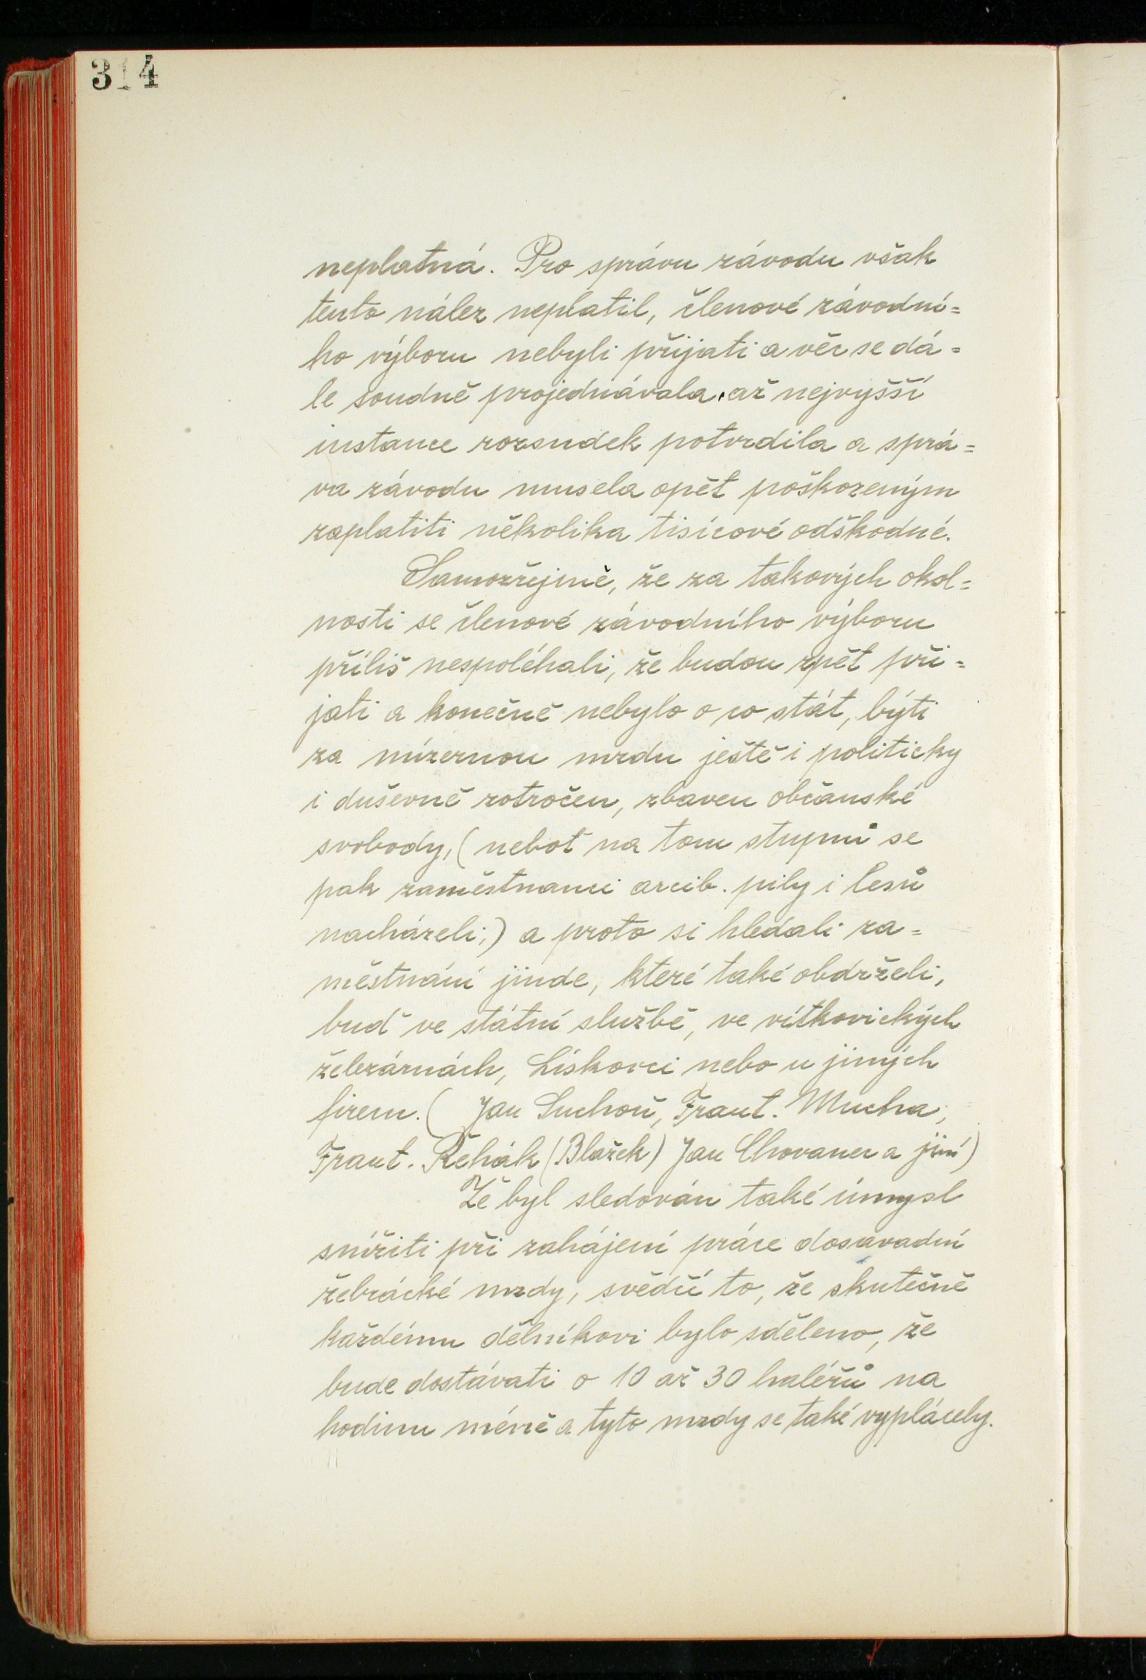 314
neplatná. Pro správu závodu však
tento nález neplatil, členové závodní=
ho výboru nebyli přijati a věc se dá=
le soudně projednávala, až nejvyšší
instance rozsudek potvrdila a sprá=
va závodu musela opět poškozeným
zaplatiti několika tisícové odškodné.
Samozřejmě, že za takových okol=
nosti se členové závodního výboru
příliš nespoléhali, že budou zpět při=
jati a konečně nebylo o co stát, býti
za mizernou mzdu ještě i politicky
i duševně zotročen, zbaven občanské
svobody, (neboť na tom stupni se
pak zaměstnanci arcib. pily i lesů
nacházeli,) a proto si hledali za=
městnání jinde, které také obdrželi,
buď ve státní službě, ve vítkovických
železárnách, Lískovci nebo u jiných
firem. (Jan Suchoň, Frant. Mucha,
Frant. Řehák (Blažek) Jan Chovanec a jiní)
Že byl sledován také úmysl
snížiti při zahájení práce dosavadní
žebrácké mzdy, svědčí to, že skutečně
každému dělníkovi bylo sděleno, že
bude dostávati o 10 až 30 haléřů na
hodinu méně a tyto mzdy se také vyplácely.